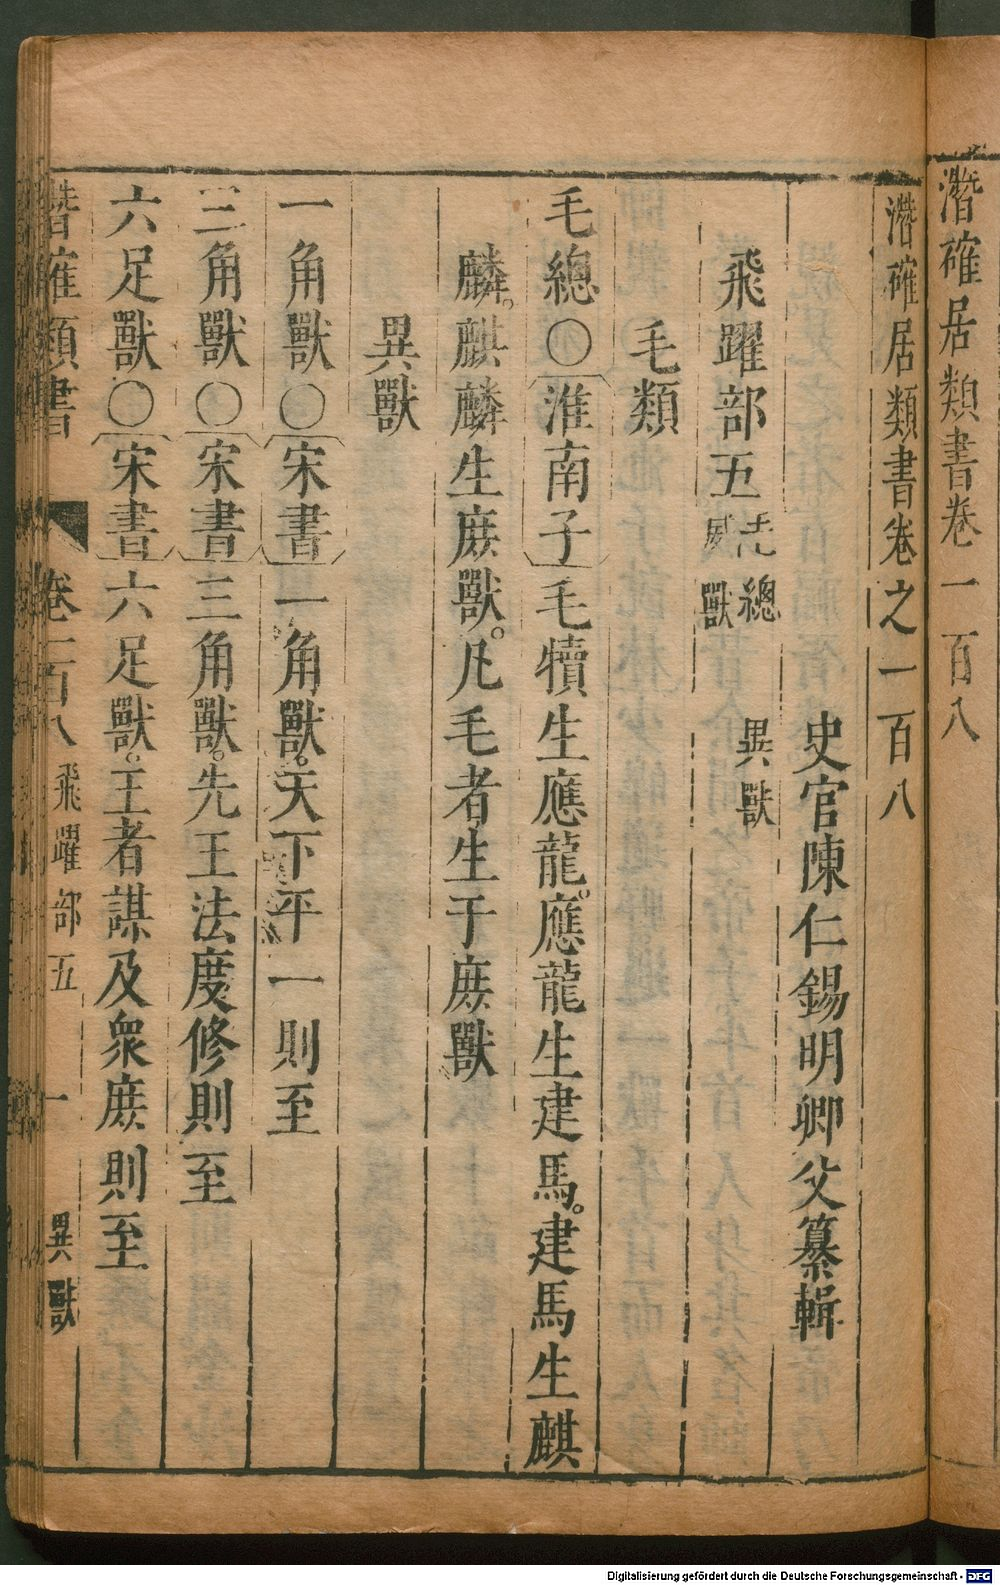 潛確居類書卷一百八
潛確居類書卷之一百八
史官陳仁錫明卿父纂輯
飛躍部五 毛總 異獸
獸
毛類
毛總○淮南子毛犢生應龍。應龍生建馬。建馬生麒
麟。麒麟生庶獸。凡毛者生于庶獸
異獸
一角獸○宋書一角獸。天下平一則至
三角獸○宋書三角獸。先王法度修則至
六足獸○宋書六足獸。王者謀及衆庶則至
潛確類書 卷一百八 飛躍部五 一 異獸
Digitalisierung gefördert durch die Deutsche Forschungsgemeinschaft - DFG